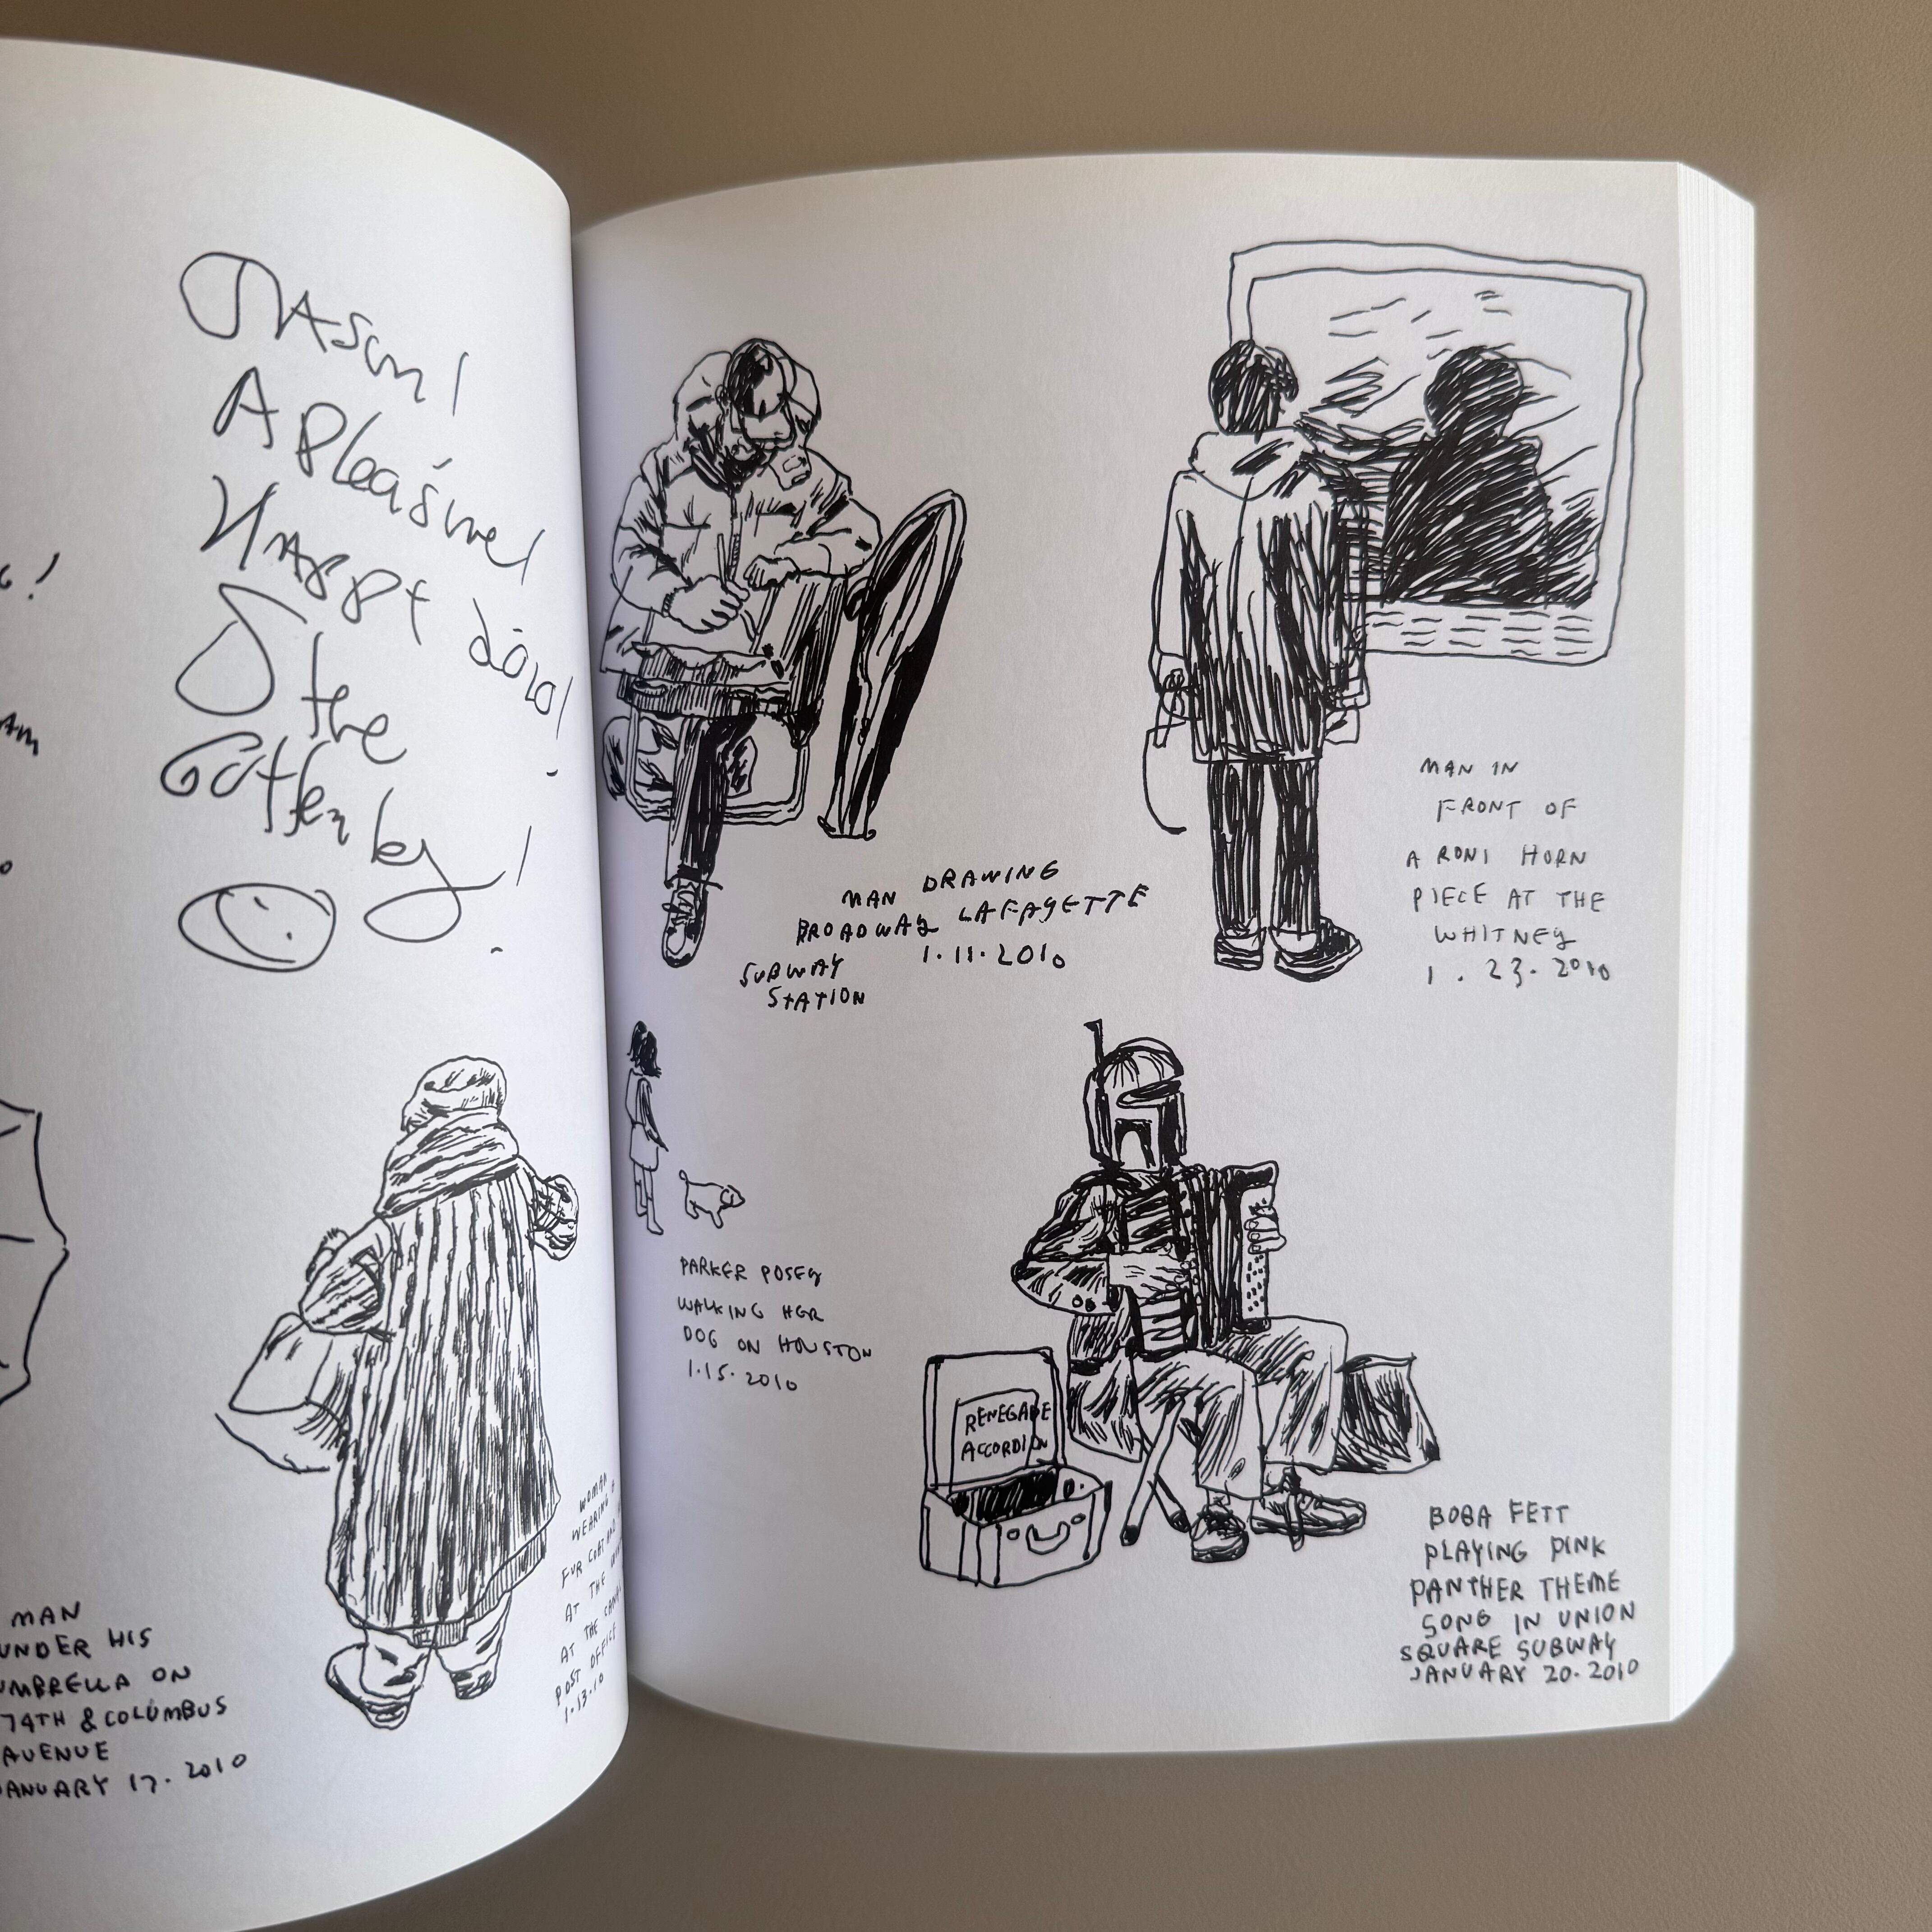 JASON!
A Pleasure!
HAPPY 2010!
JAM
MAN
UNDER HIS
UMBRELLA ON
74TH & COLUMBUS
AVENUE
JANUARY 17. 2010
WOMAN
WEARING A
FUR COAT AND
AT THE
AT THE
POST OFFICE
1.13.10
MAN DRAWING
BROADWAY LAFAYETTE
SUBWAY 1.11.2010
STATION
MAN IN
FRONT OF
A RONI HORN
PIECE AT THE
WHITNEY
1.23.2010
PARKER POSEY
WALKING HER
DOG ON HOUSTON
1.15.2010
RENEGADE
ACCORDION
BOBA FETT
PLAYING PINK
PANTHER THEME
SONG IN UNION
SQUARE SUBWAY
JANUARY 20.2010